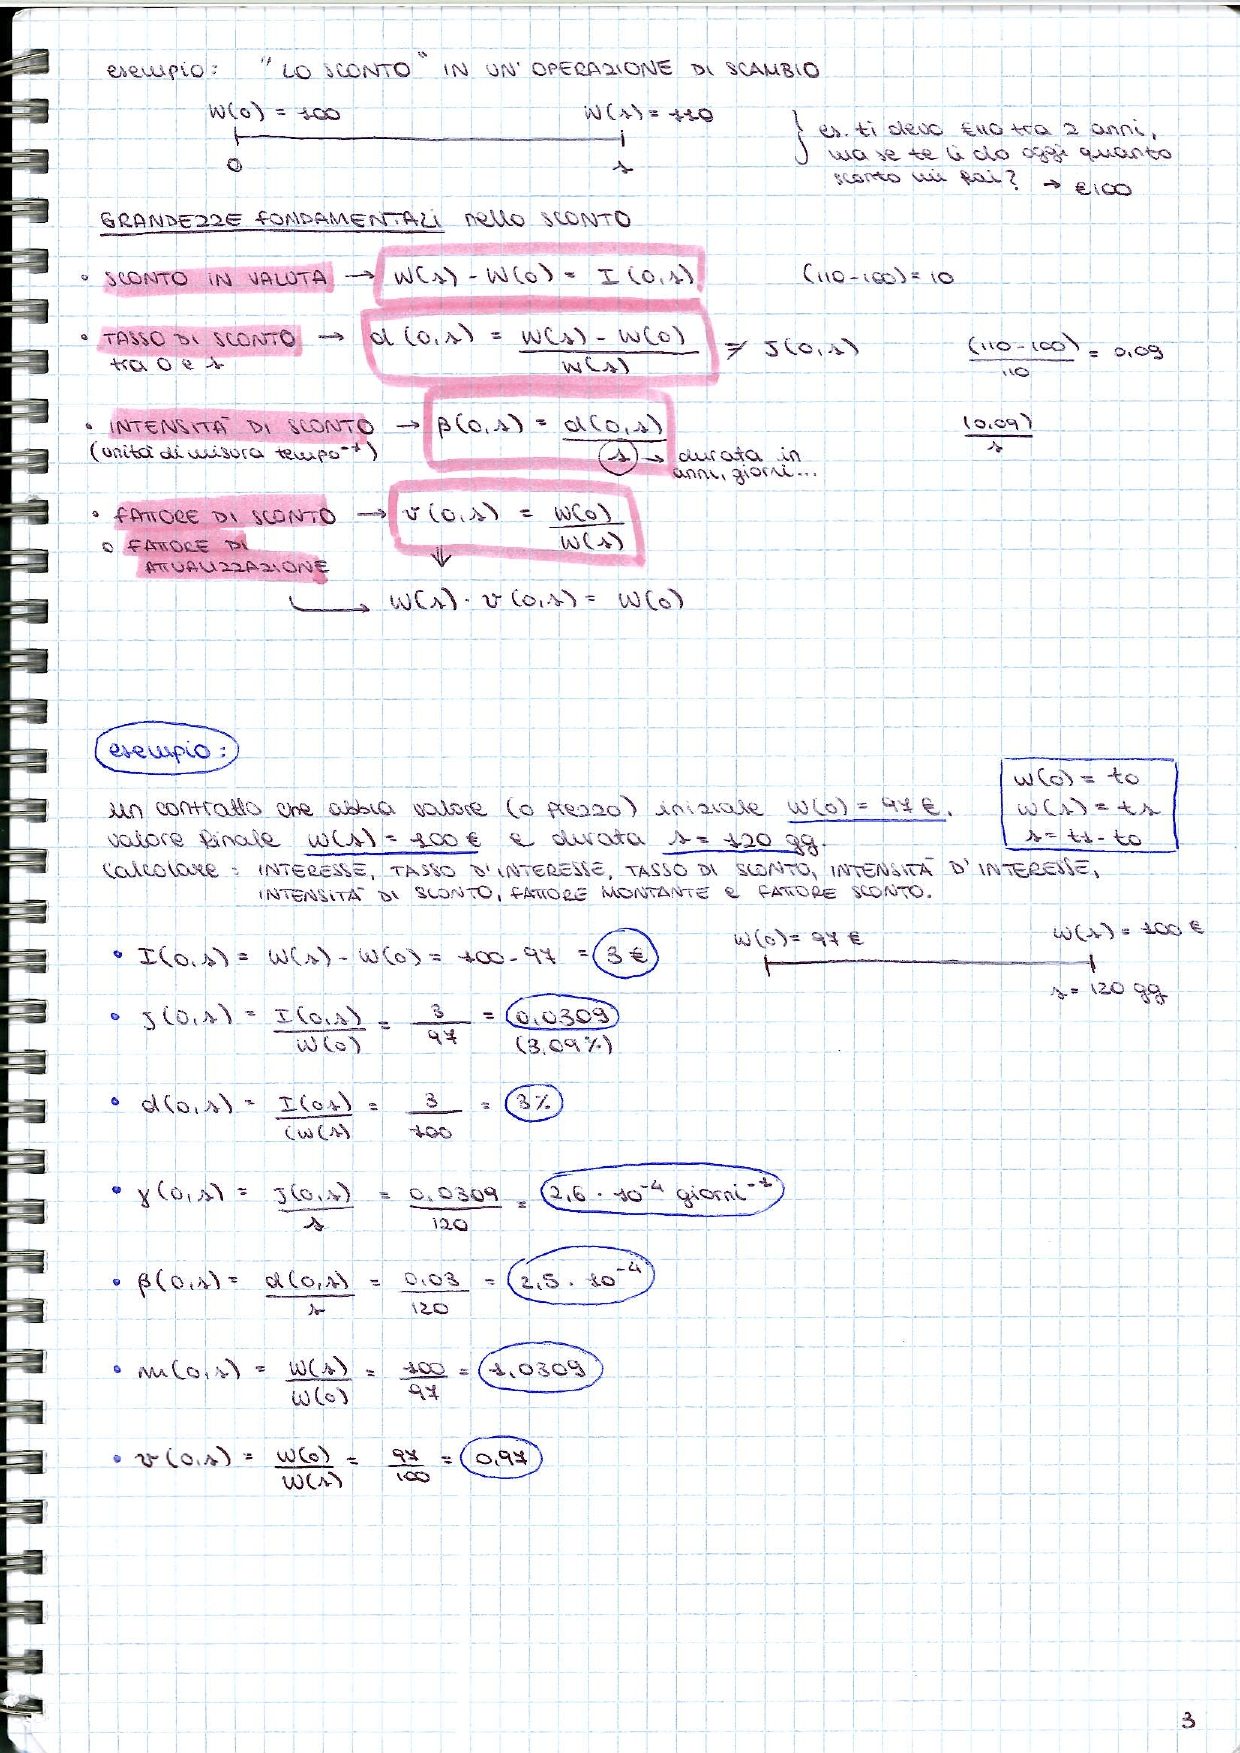 esempio: "LO SCONTO" IN UN' OPERAZIONE DI SCAMBIO
W(0) = 100
W(s) = 110
0
s
} es. ti devo €110 tra 2 anni,
ma se te li do oggi quanto
sconto mi fai? → €100
GRANDEZZE FONDAMENTALI nello SCONTO
• SCONTO IN VALUTA → W(s) - W(0) = I(0,s) (110-100) = 10
• TASSO DI SCONTO → d(0,s) = W(s) - W(0) / W(s) ≠ J(0,s) (110-100) / 110 = 0,09
tra 0 e s
• INTENSITÀ DI SCONTO → β(0,s) = d(0,s) / s (0,09) / s
(unità di misura tempo⁻¹)
→ durata in
anni, giorni...
• FATTORE DI SCONTO → v(0,s) = W(0) / W(s)
o FATTORE DI
ATTUALIZZAZIONE
→ W(s) · v(0,s) = W(0)
esempio:
W(0) = t0
W(s) = ts
s = ts - t0
Un contratto che abbia valore (o prezzo) iniziale W(0) = 97 €.
valore finale W(s) = 100 € e durata s = 120 gg.
Calcolare: INTERESSE, TASSO D'INTERESSE, TASSO DI SCONTO, INTENSITÀ D'INTERESSE,
INTENSITÀ DI SCONTO, FATTORE MONTANTE e FATTORE SCONTO.
W(0) = 97 €
W(s) = 100 €
s = 120 gg
• I(0,s) = W(s) - W(0) = 100 - 97 = 3 €
• J(0,s) = I(0,s) / W(0) = 3 / 97 = 0,0309
(3,09%)
• d(0,s) = I(0s) / (W(s) = 3 / 100 = 3%
• γ(0,s) = J(0,s) / s = 0,0309 / 120 = 2,6 · 10⁻⁴ giorni⁻¹
• β(0,s) = d(0,s) / s = 0,03 / 120 = 2,5 · 10⁻⁴
• m(0,s) = W(s) / W(0) = 100 / 97 = 1,0309
• v(0,s) = W(0) / W(s) = 97 / 100 = 0,97
3